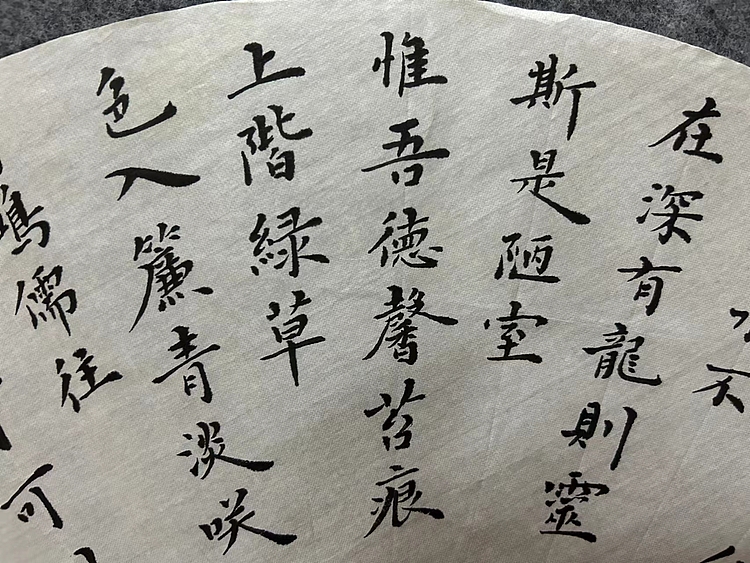 在深有龍則靈
斯是陋室
惟吾德馨苔痕
上階緑草
色入簾青淡咲
鴻儒往
可